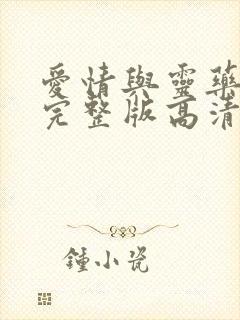 愛情與靈藥
完整版高清
鍾小瓷